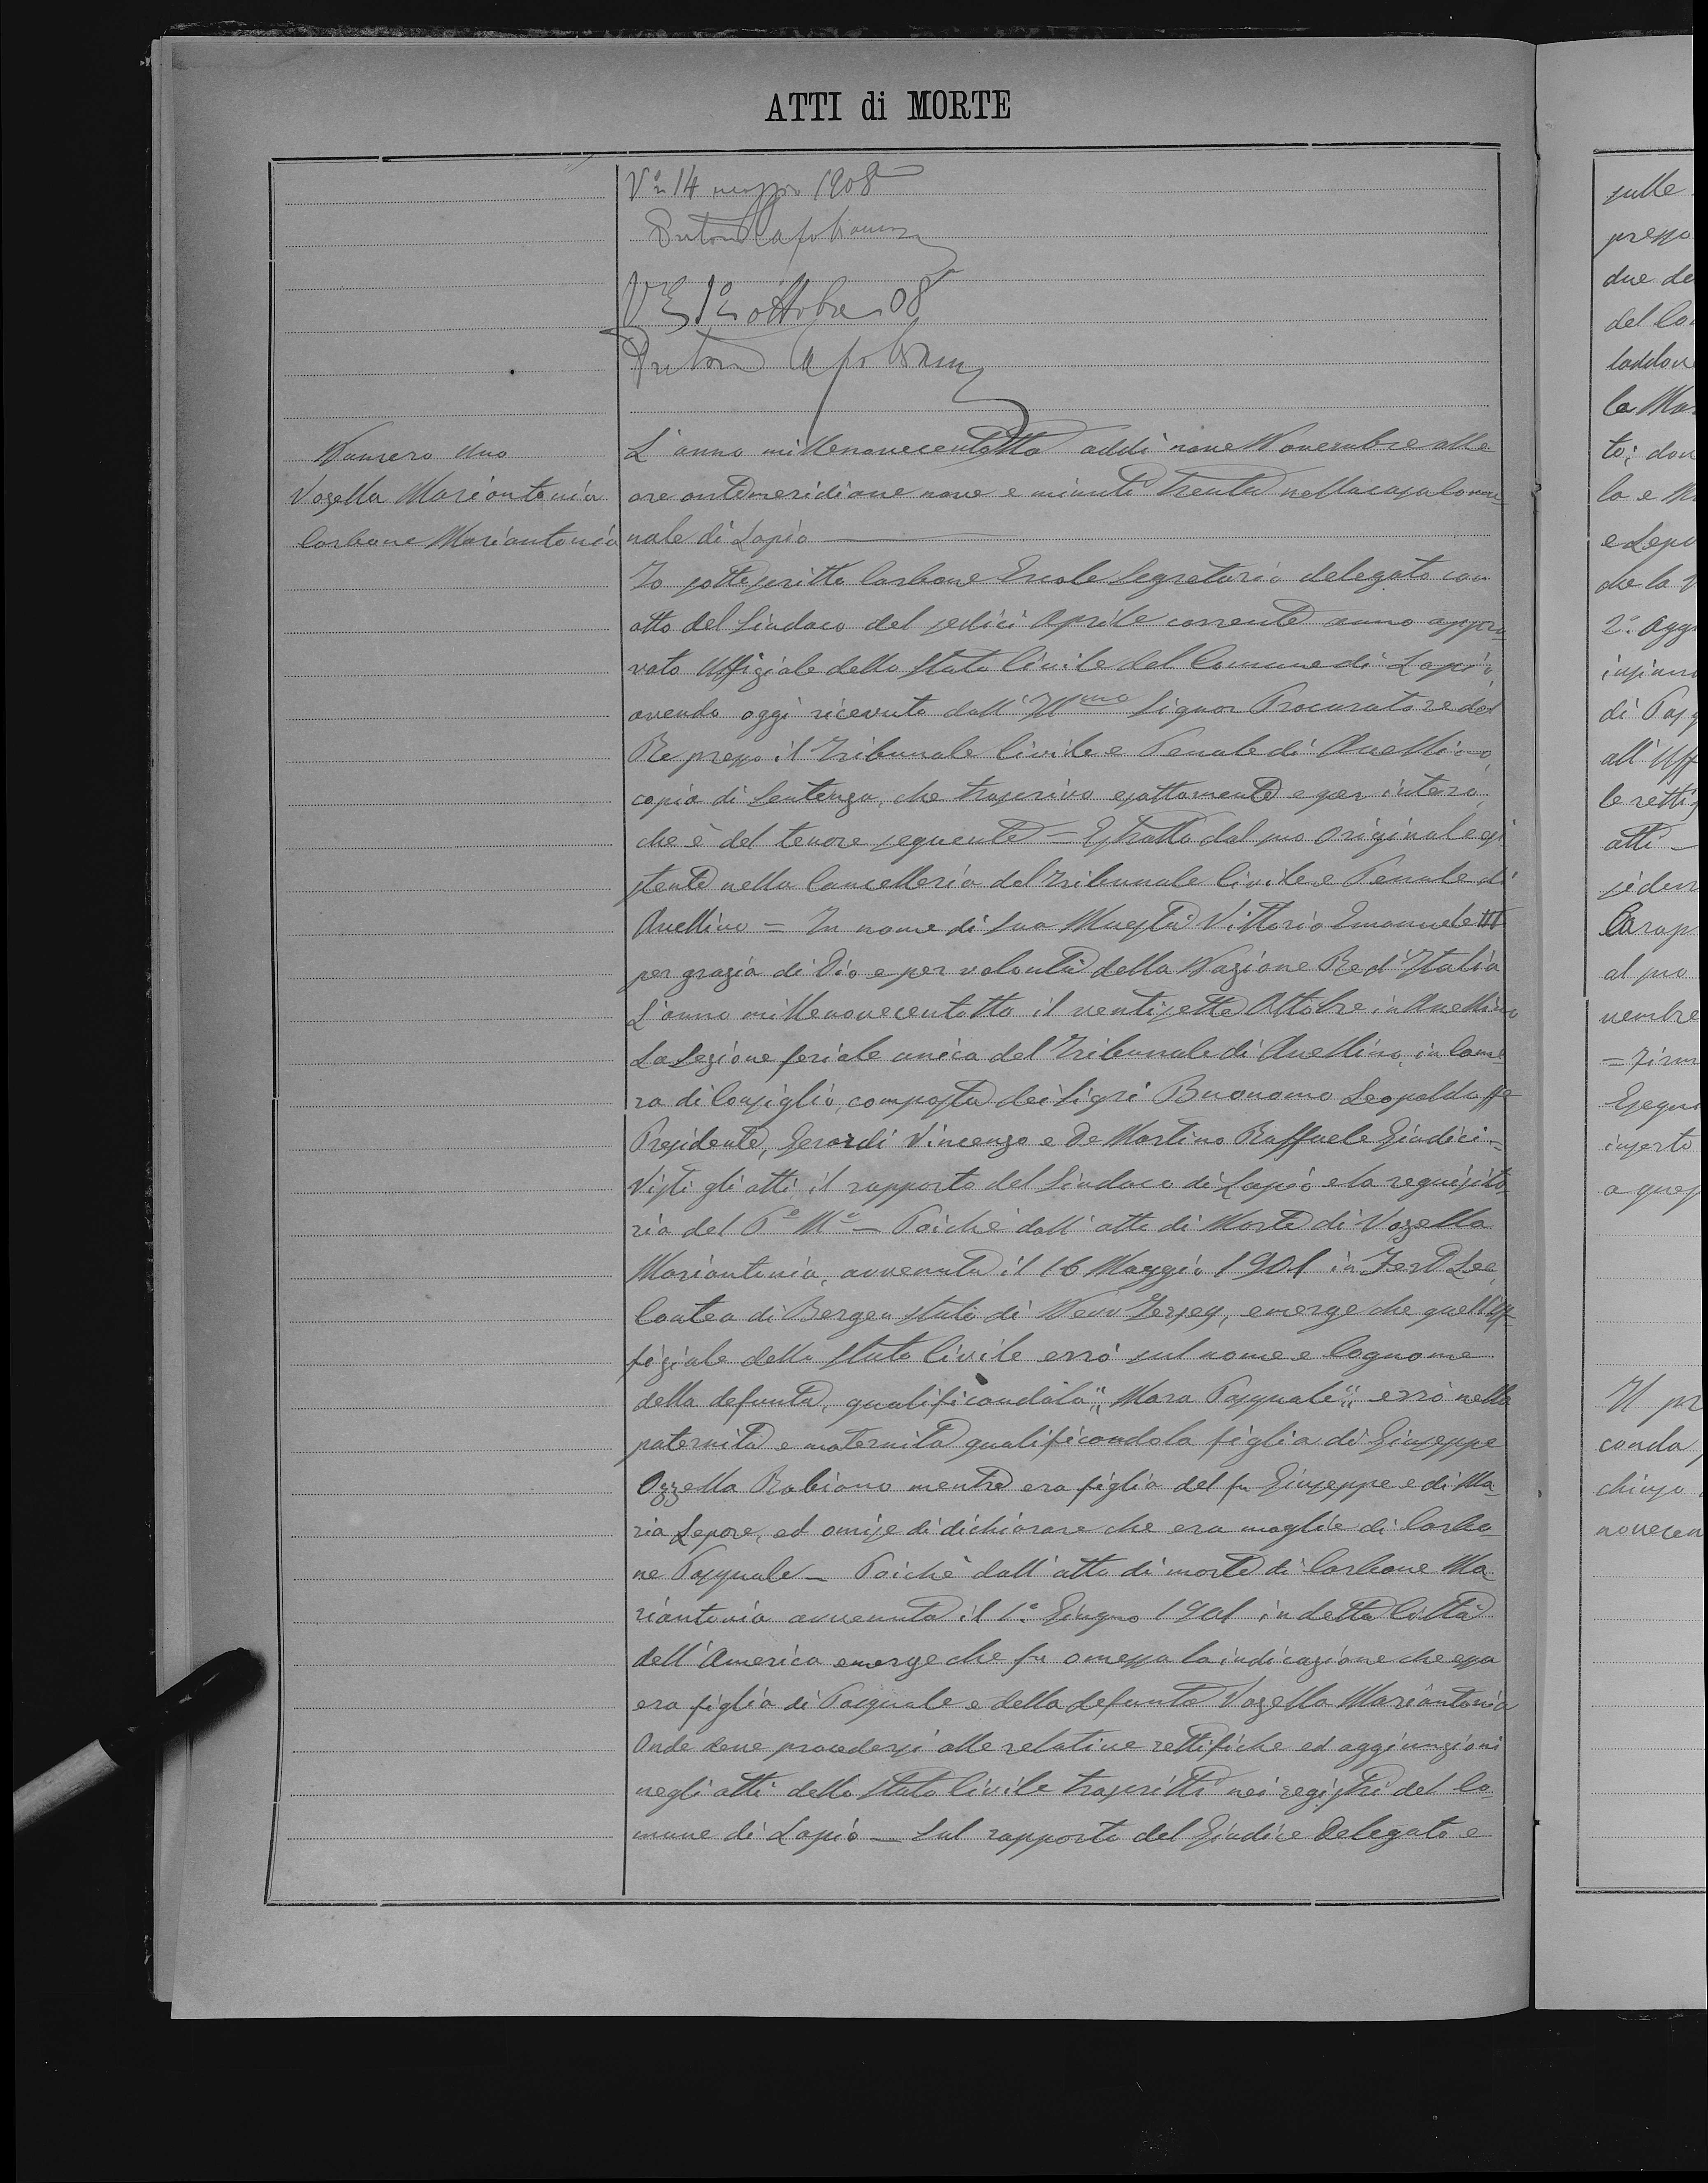 ATTI di MORTE
Vo 14 maggio 1908
Vo 1o ottobre 08
Numero Uno
Vozella Mariantonia
Carbone Mariantonia
L'anno millenovecentotto addì nove Novembre alle
ore antimeridiane nove e minuti trenta nella casa Comu-
nale di Lapio
Io sottoscritto Carbone Ercole Segretario delegato con
atto del Sindaco del sedici Aprile corrente anno appro
vato Uffiziale dello Stato Civile del Comune di Lapio,
avendo oggi ricevuto dall'Ill.mo Signor Procuratore del
Re presso il Tribunale Civile e Penale di Avellino,
copia di Sentenza, che trascrivo esattamente e per intero,
che è del tenore seguente = Estratto dal suo originale esi
stente nella Cancelleria del Tribunale Civile e Penale di
Avellino = In nome di Sua Maestà Vittorio Emanuele III
per grazia di Dio e per volontà della Nazione Re d'Italia
L'anno millenovecentotto il ventisette Ottobre in Avellino
La Sezione feriale unica del Tribunale di Avellino, in Came
ra di Consiglio, composta dei Sigri Buonomo Leopoldo ff.
Presidente, Gerardi Vincenzo e De Martino Raffaele Giudici =
Visti gli atti, il rapporto del Sindaco di Lapio e la requisito-
ria del Po Mo — Poichè dall'atto di Morte di Vozella
Mariantonia, avvenuta il 16 Maggio 1901 in Fort Lee,
Contea di Bergen Stato di New Jersey, emerge che quell'Uf-
fiziale dello Stato Civile errò sul nome e Cognome
della defunta, qualificandola "Mara Pasquale" errò nella
paternità e maternità qualificandola figlia di Giuseppe
Ozzella Rabiano mentre era figlia del fu Giuseppe e di Ma-
ria Lepore, ed omise di dichiarare che era moglie di Carbo-
ne Pasquale — Poichè dall'atto di morte di Carbone Ma-
riantonia avvenuta il 1o Giugno 1901 in detta Città
dell'America emerge che fu omessa la indicazione che essa
era figlia di Pasquale e della defunta Vozella Mariantonia
Onde deve procedersi alle relative rettifiche ed aggiunzioni
negli atti dello Stato Civile trascritti nei registri del Co-
mune di Lapio — Sul rapporto del Giudice Delegato e
sulle
presso
due de
del Co
la Ma
to; dov
la e M
e Lepo
che la V
2o Agg
di Pasq
all'Uff
le retti
atti —
al suo
vembre
= Firm
Esegui
inserto
a ques
Il pr
chiuso
novecen